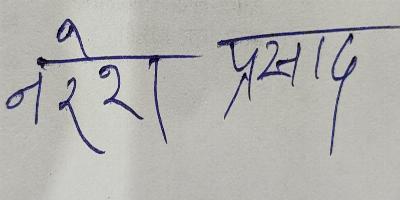 नरेश प्रसाद